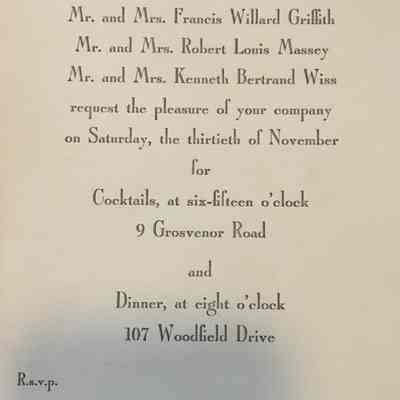 Mr. and Mrs. Francis Willard Griffith
Mr. and Mrs. Robert Louis Massey
Mr. and Mrs. Kenneth Bertrand Wiss
request the pleasure of your company
on Saturday, the thirtieth of November
for
Cocktails, at six-fifteen o'clock
9 Grosvenor Road
and
Dinner, at eight o'clock
107 Woodfield Drive
R.s.v.p.